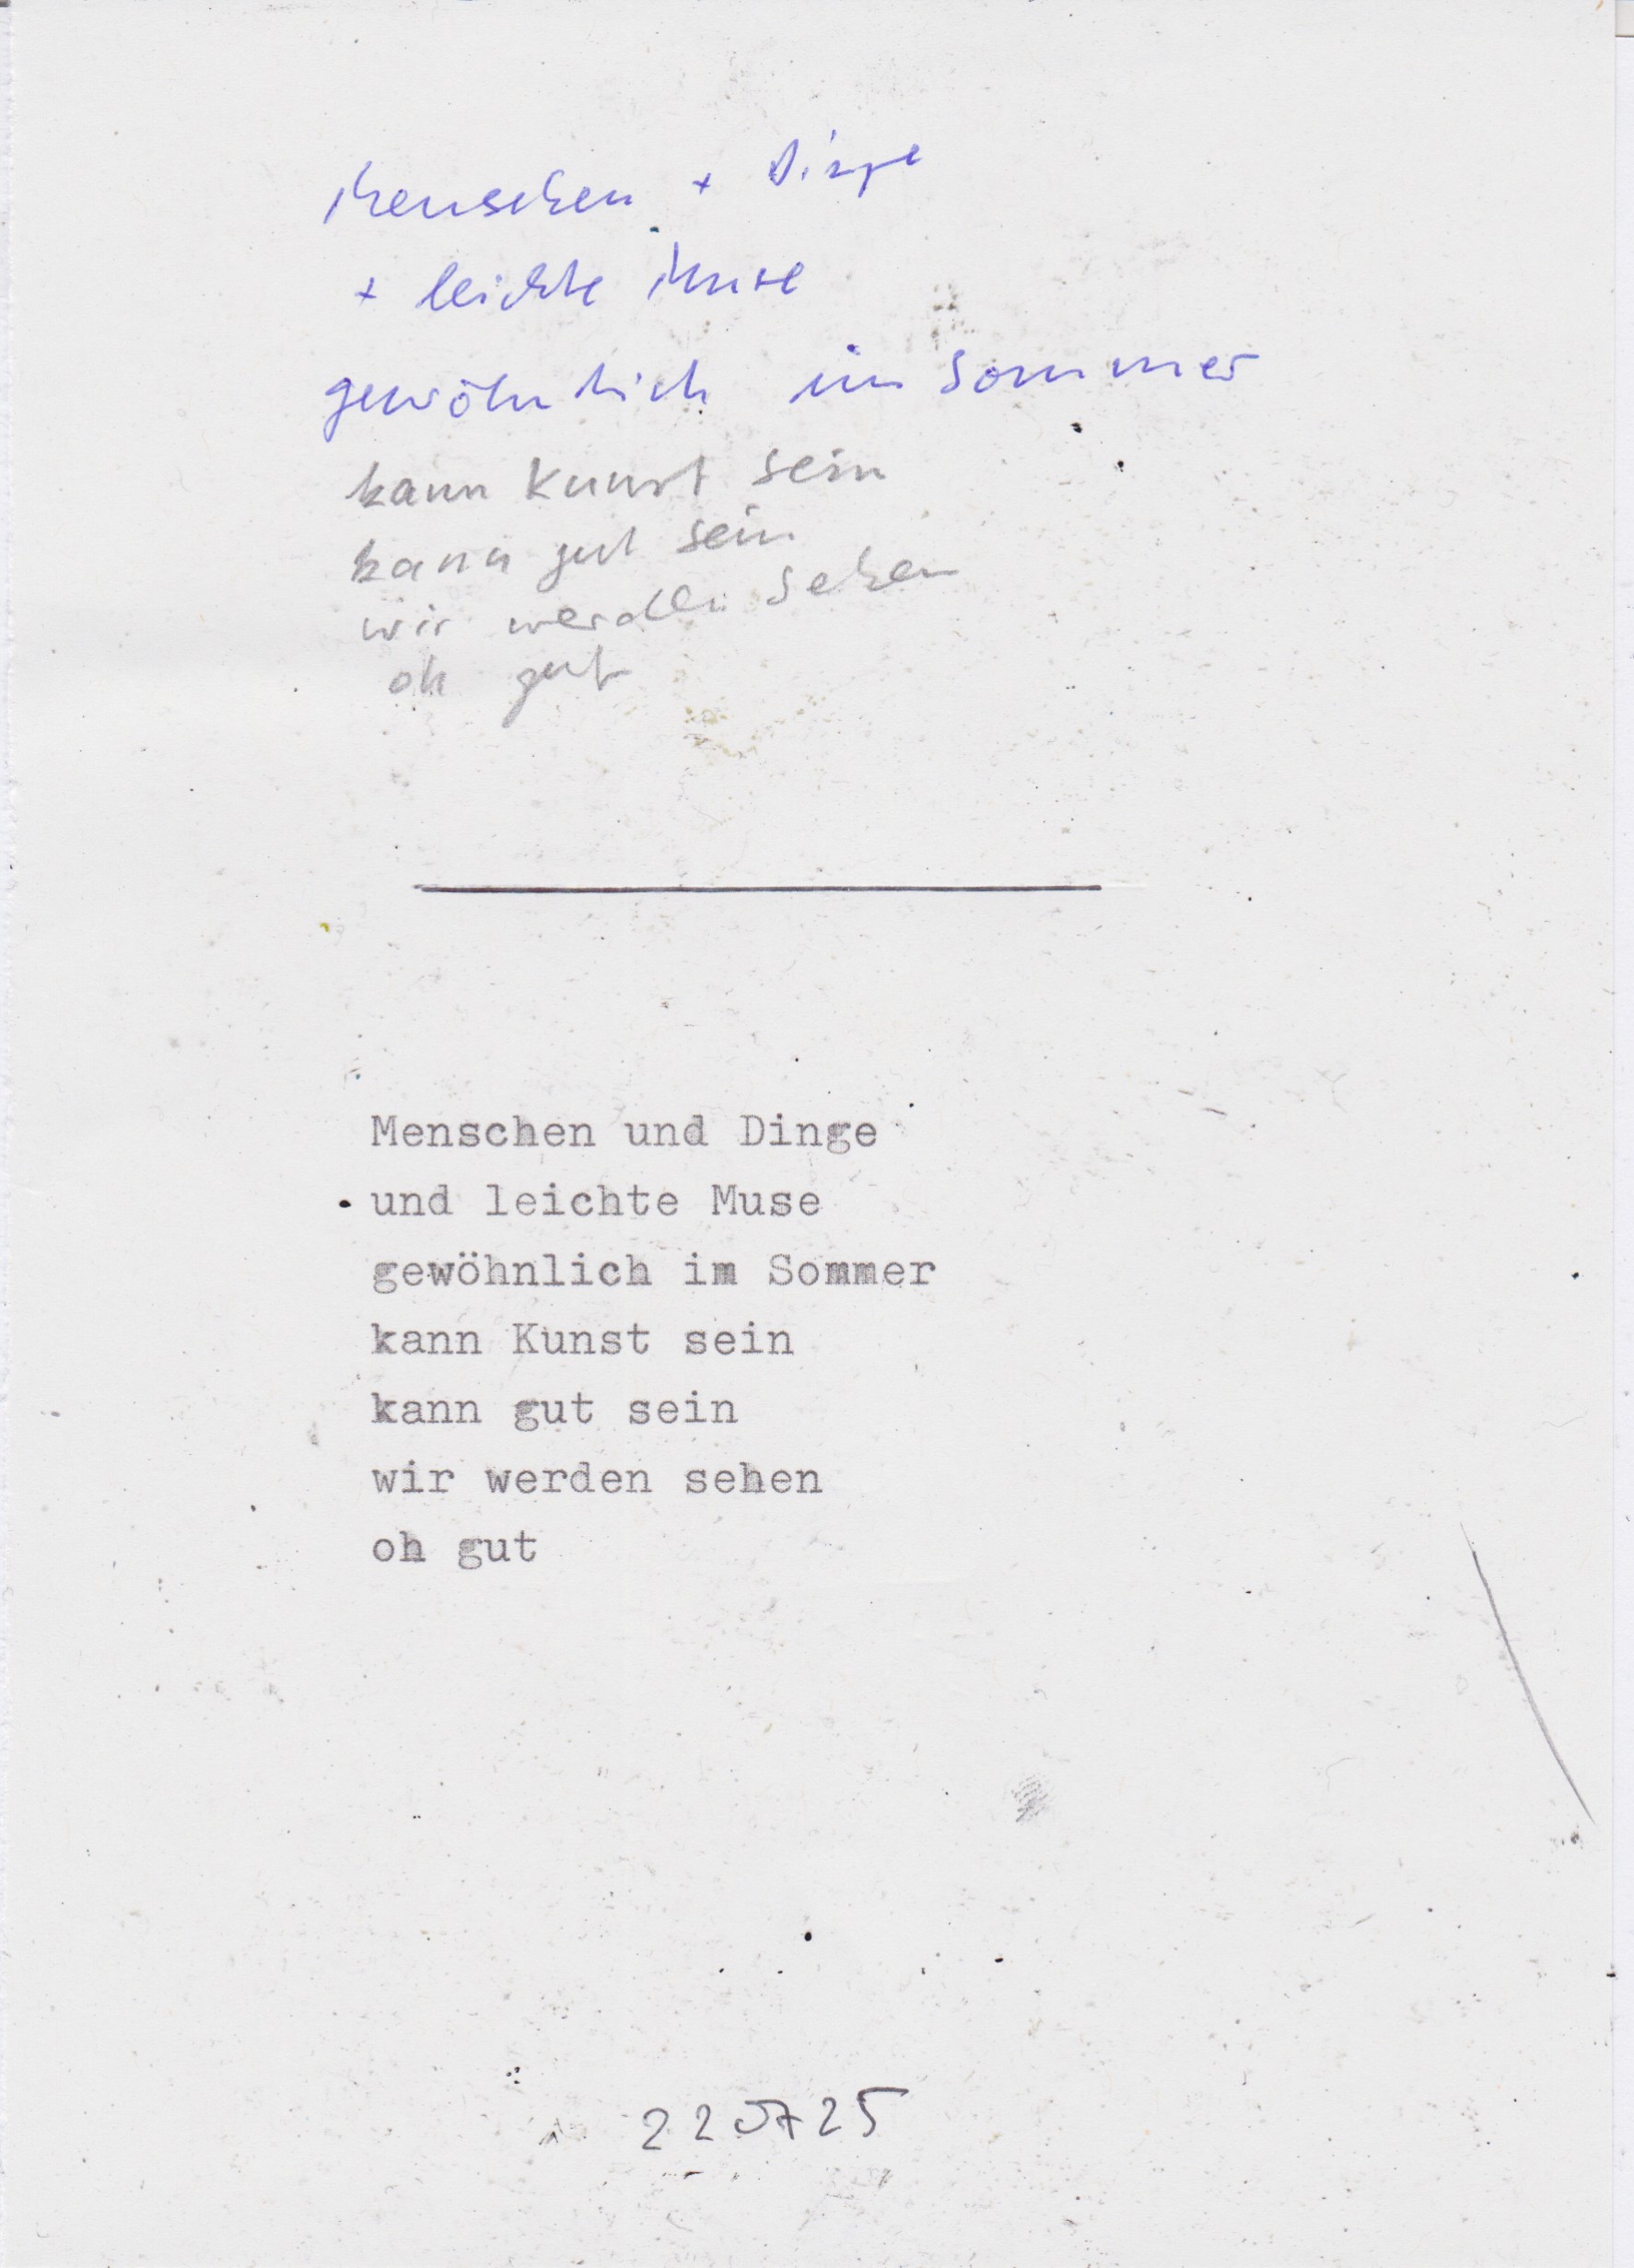 Menschen + Dinge
+ leichte Muse
gewöhnlich im Sommer
kann Kunst sein
kann gut sein
wir werden sehen
oh gut
Menschen und Dinge
und leichte Muse
gewöhnlich im Sommer
kann Kunst sein
kann gut sein
wir werden sehen
oh gut
220725